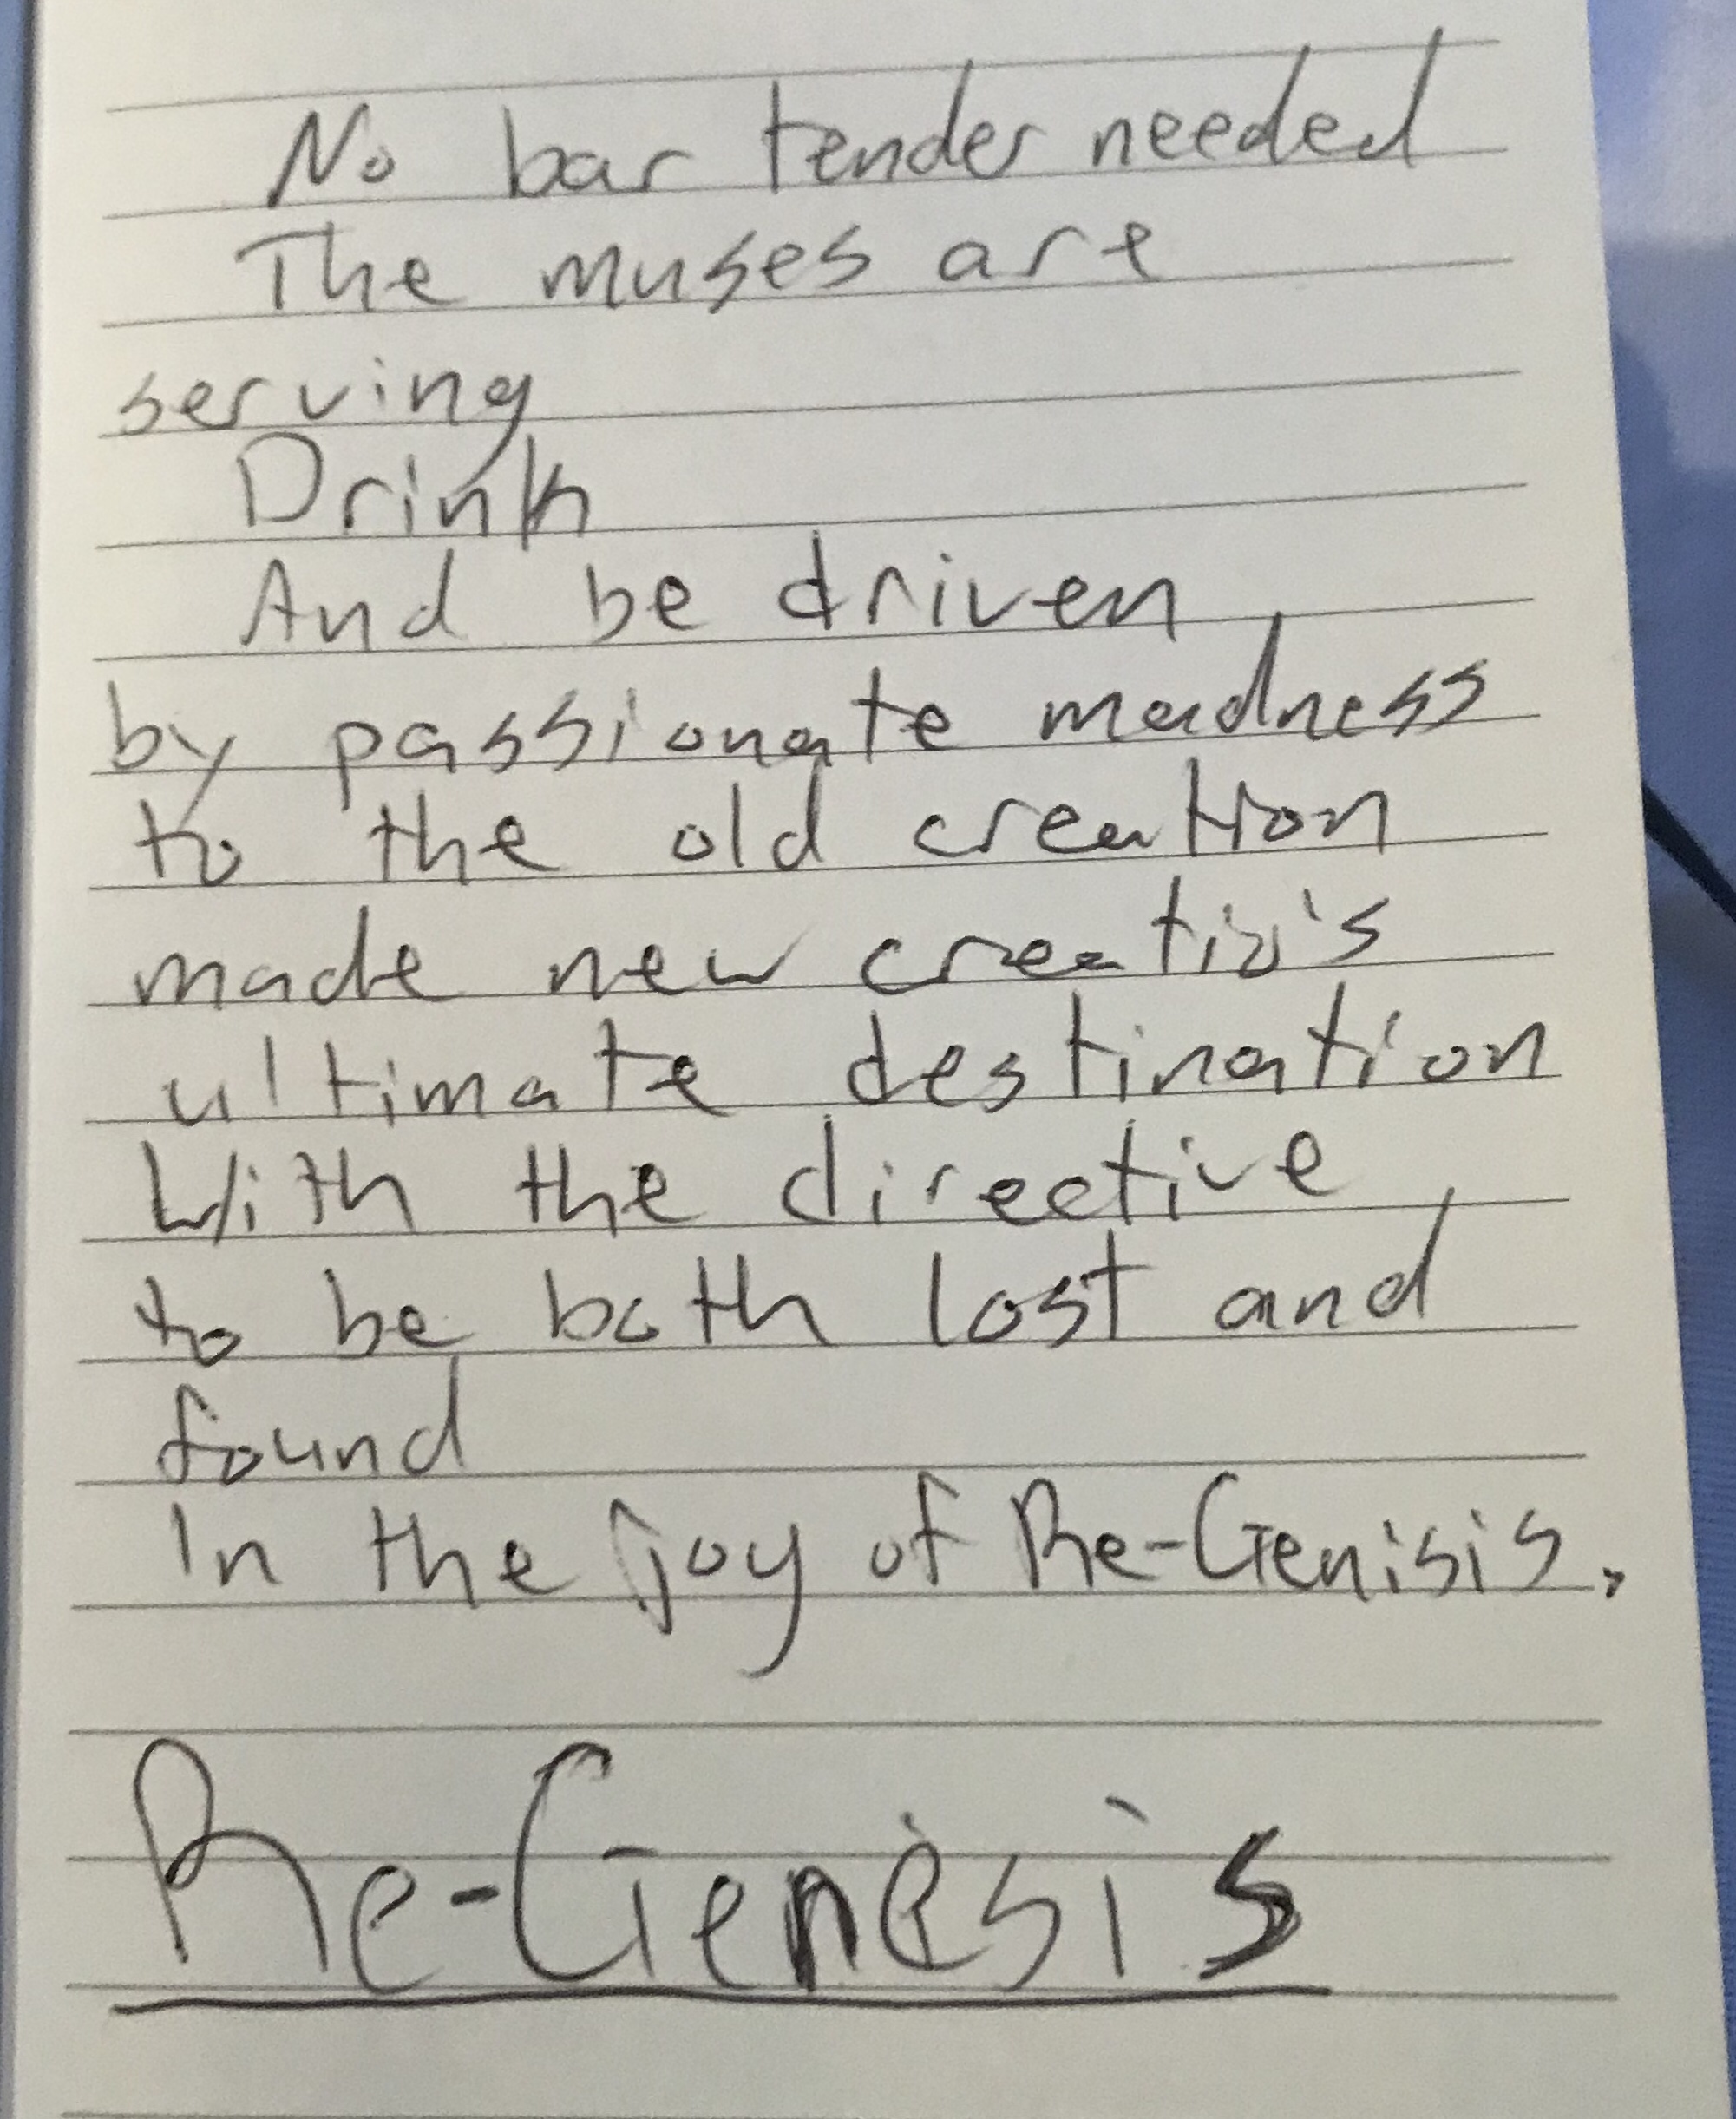 No bar tender needed
The muses are
serving
Drink
And be driven
by passionate madness
to the old creation
made new creatio's
ultimate destination
With the directive
to be both lost and
found
In the joy of Re-Genisis.
Re-Genesis